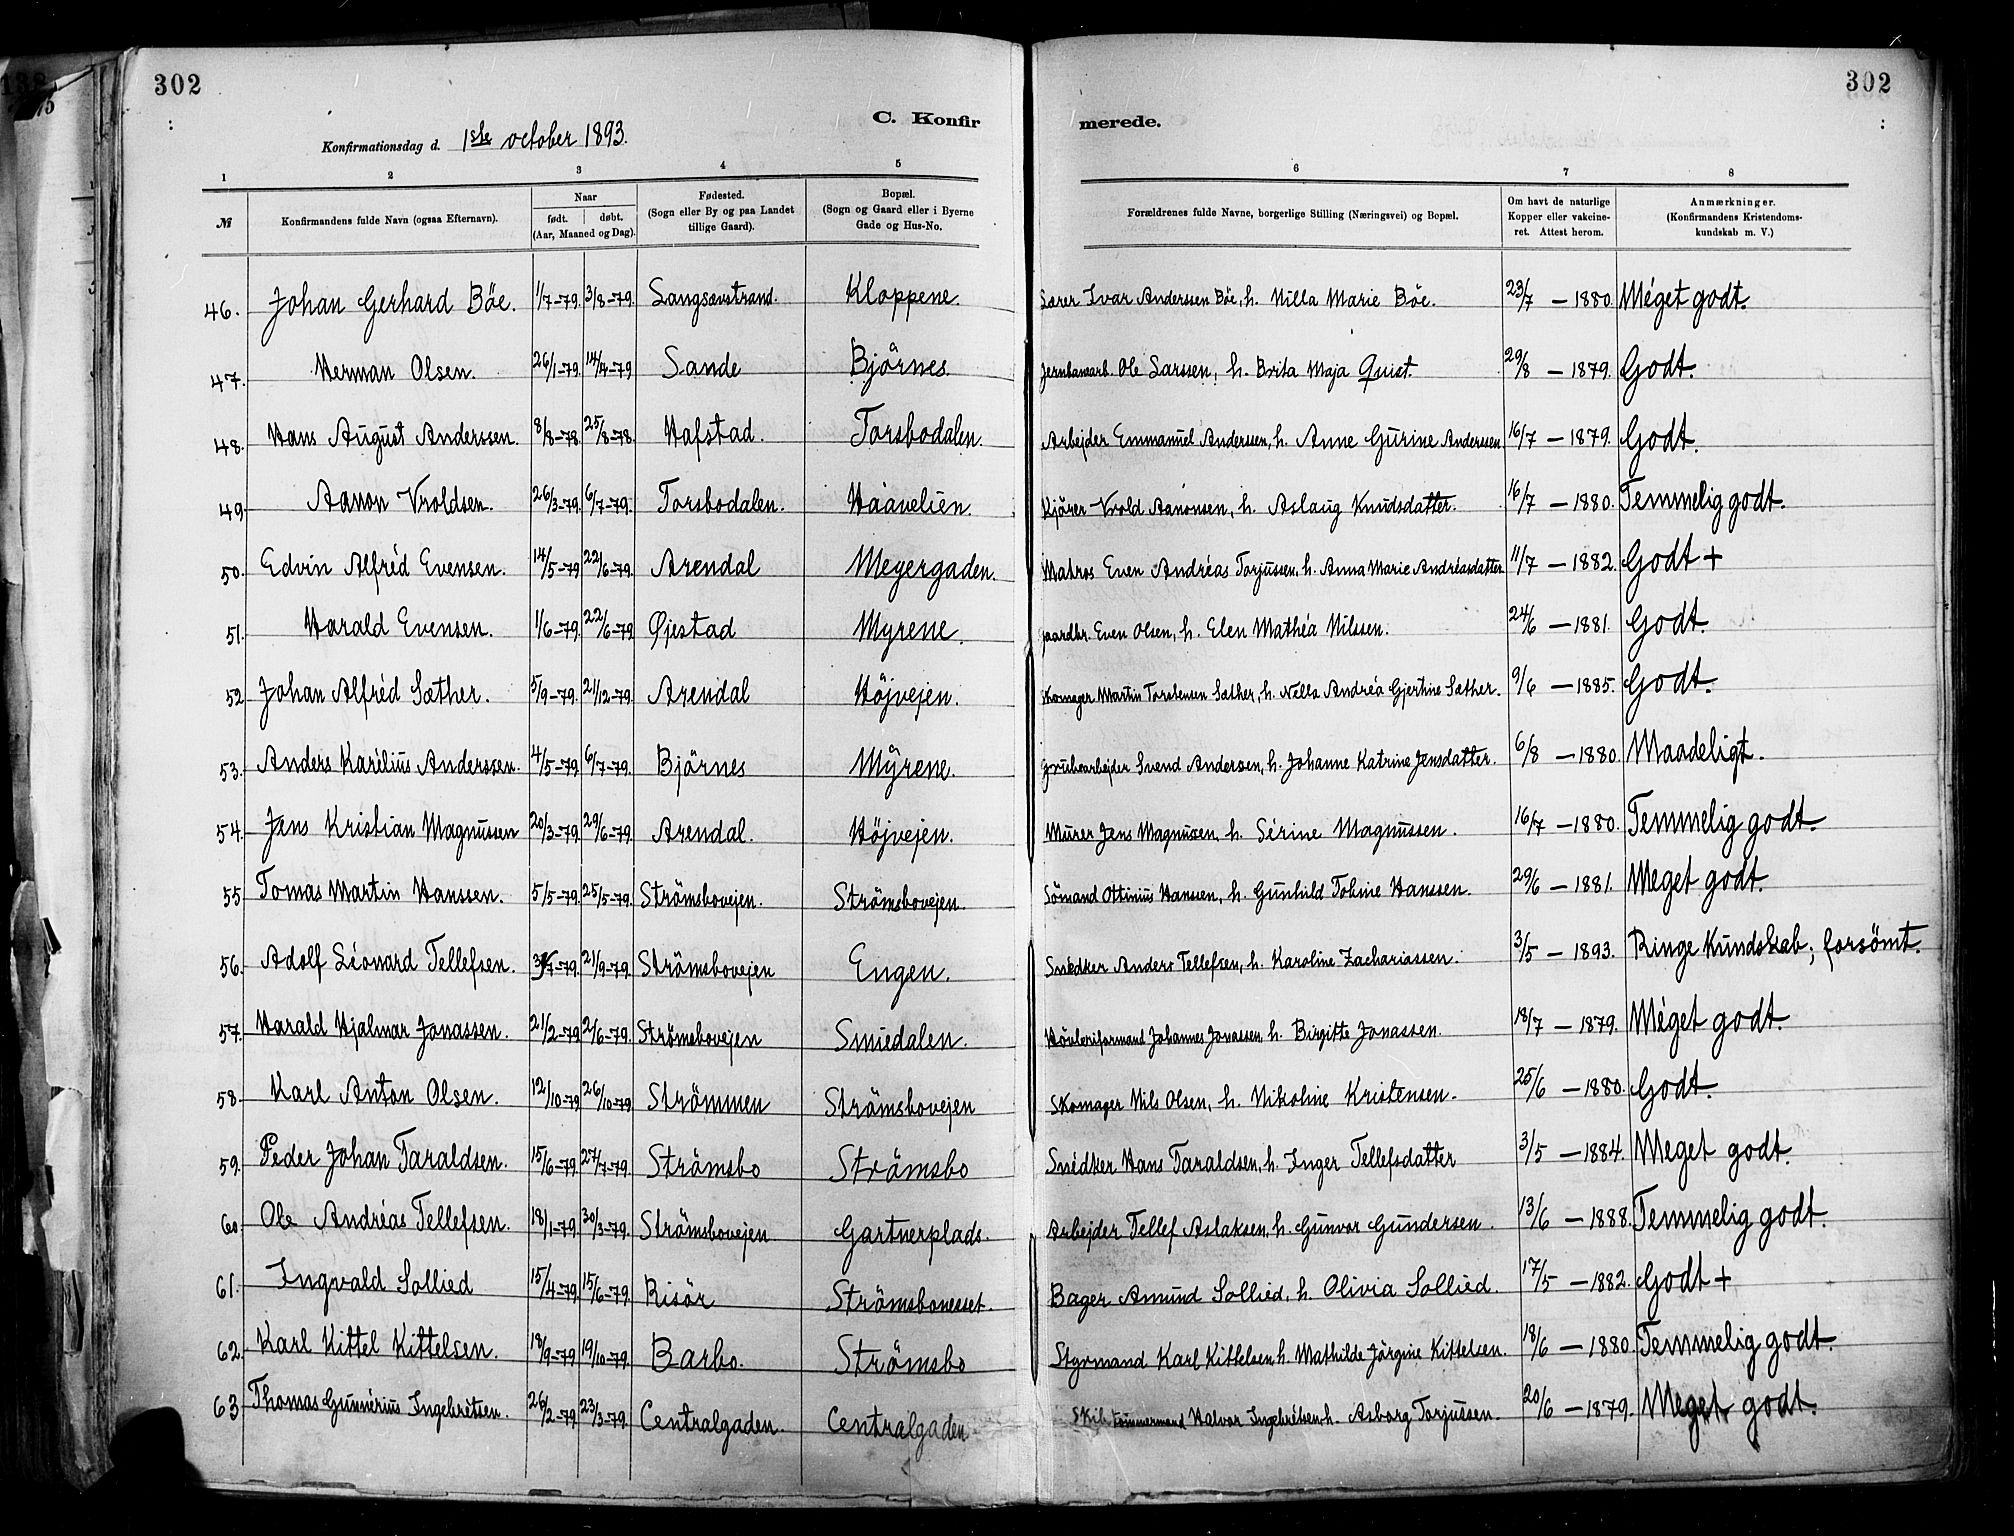 302
302
C. Konfirmerede.
Konfirmationsdag d. 1ste october 1893.
1 2 3 4 5 6 7 8
№ Konfirmandens fulde Navn (ogsaa Efternavn). Naar født. døbt. (Aar, Maaned og Dag). Fødested. (Sogn eller By og paa Landet tillige Gaard). Bopæl. (Sogn og Gaard eller i Byerne Gade og Hus-No. Forældrenes fulde Navne, borgerlige Stilling (Næringsvei) og Bopæl. Om havt de naturlige Kopper eller vakcineret. Attest herom. Anmærkninger. (Konfirmandens Kristendomskundskab m. V.)
46. Johan Gerhard Böe. 1/7-79. 3/8-79. Langsævstrand. Kloppene. Ivar Anderssen Böe, h. Nilla Marie Böe. 23/7 - 1880. Méget godt.
47. Herman Olsen. 26/1-79. 14/4-79 Sande Björnes Jernbanearb. Ole Larssen, h. Brita Maja Quist. 29/8 - 1879. Godt.
48. Hans August Anderssen. 8/8-78. 25/8-78. Hafstad. Torsbodalen. Arbejder Emmanuel Anderssen, h. Anne Gurine Anderssen 16/7 - 1879. Godt.
49 Aanon Vroldsen. 26/3-79. 6/7-79. Torsbodalen. Haavelien. Kjörer Vrold Aanonsen, h. Aslaug Knudsdatter. 16/7 - 1880. Temmelig godt.
50. Edvin Alfréd Evensen. 14/5-79 22/6-79. Arendal Meyergaden. Matros Even Andréas Torjussen, h. Anna Marie Andréasdatter 11/7 - 1882. Godt +
51. Harald Evensen. 1/6-79. 22/6-79 Øjestad Myrene. gaardbr. Even Olsen, h. Elen Mathéa Nilssen. 24/6 - 1881. Godt.
52 Johan Alfréd Sæther. 5/9-79. 21/12-79. Arendal Höjvejen. Skomager Martin Torstensen Sæther, h. Nella Andréa Gjertine Sæther. 9/6 - 1885. Godt.
53. Anders Karélius Anderssen. 4/5-79. 6/7-79. Björnes Myrene. Grubearbejder Svend Anderssen, h. Johanne Katrine Jensdatter. 6/8 - 1880. Maadeligt.
54. Jens Kristian Magnussen 20/3-79. 29/6-79. Arendal. Höjvejen. Murer Jens Magnusen, h. Sérine Magnussen. 16/7 - 1880. Temmelig godt.
55 Tomas Martin Hanssen. 5/5-79. 25/5-79. Strömsbovejen. Strömsbovejen. Sömand Ottinius Hanssen, h. Gunhild Tobine Hanssen. 29/6 - 1881. Meget godt.
56. Adolf Léonard Tellefsen. 21/9-79. Strömsbovejen Engen. Snedker Anders Tellefsen, h. Karoline Zachariassen. 3/5 - 1893. Ringe Kundskab; forsömt.
57. Harald Hjalmar Jonassen. 21/2-79 2/6-79. Strömsbovejen Smiedalen. Hövleriformand Johannes Jonassen, h. Birgitte Jonassen. 18/7 - 1879. Méget godt.
58. Karl Anton Olsen. 12/10-79 26/10-79 Strömmen Strömsbovejen Skomager Nils Olsen, h. Nikoline Kristensen. 25/6 - 1880. Godt.
59. Peder Johan Taraldsen. 15/6-79. 27/7-79. Strömsbo Strömsbo Snédker Hans Taraldsen, h. Inger Tellefsdatter 3/5 - 1884. Meget godt.
60. Ole Andréas Tellefsen. 18/1-79. 30/3-79. Strömsbovejen Gartnerplads. Arbejder Tellef Aslaksen, h. Gunvor Gundersen. 13/6 - 1888. Temmelig godt.
61. Ingvald Sollied 15/4-79. 15/6-79. Risör Strömsbonesset. Bager Amund Sollied, h. Olivia Sollied. 17/5 - 1882. Godt +
62. Karl Kittel Kittelsen. 18/9-79 19/10-79. Barbo. Strömsbo Styrmand Karl Kittelsen h. Mathilde Jörgine Kittelsen. 18/6 - 1880. Temmelig godt.
63. Thomas Gunnérius Ingebretsen. 26/2-79. 23/3-79. Centralgaden. Centralgaden Skibstömmermand Halvor Ingebretsen h. Asborg Torjussen. 20/6 - 1879. Meget godt.